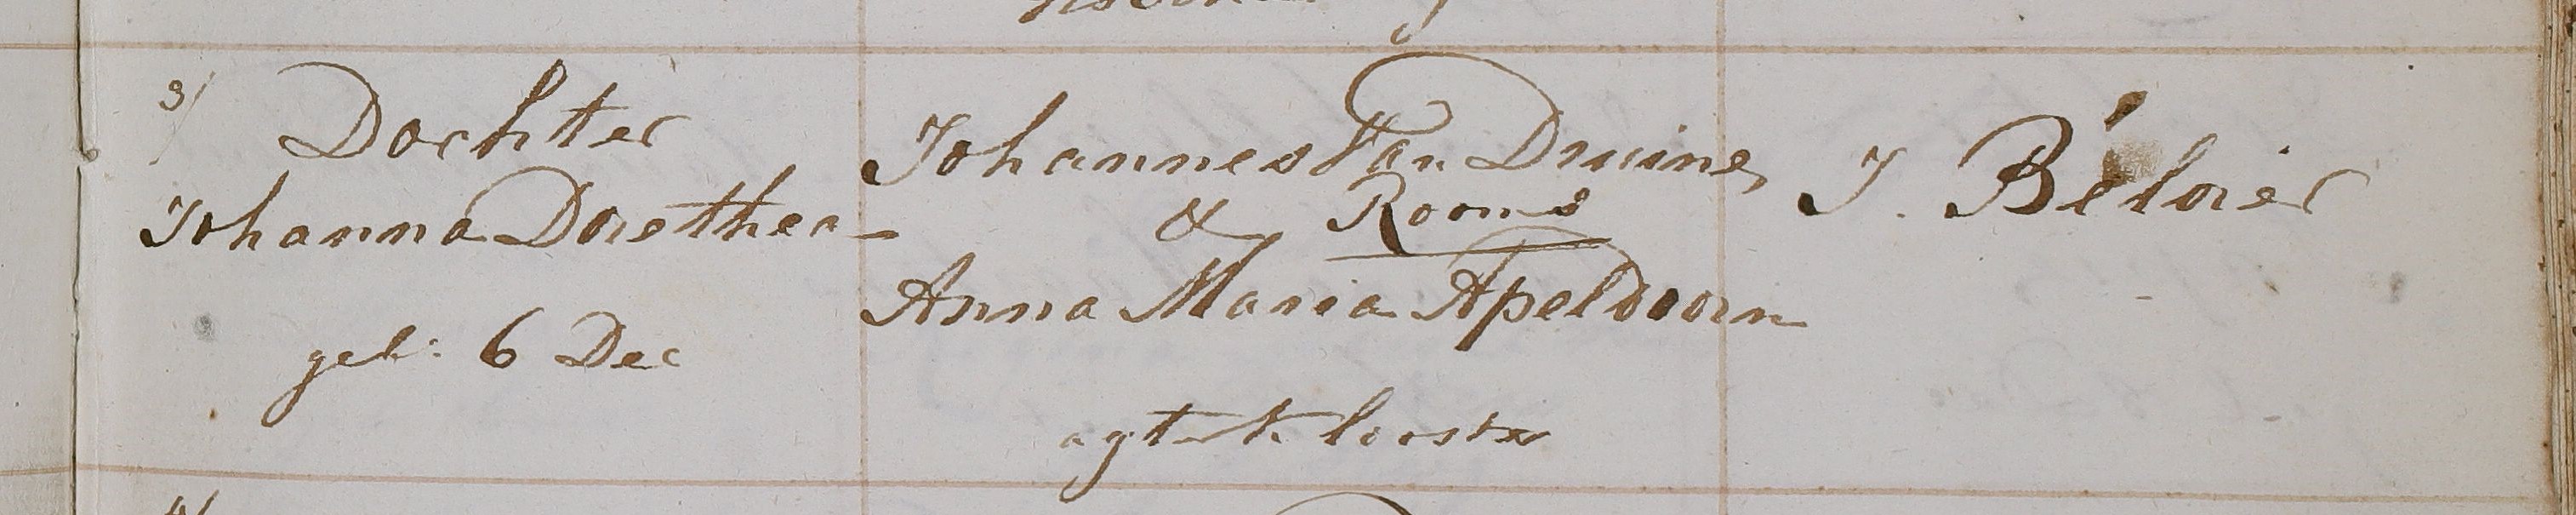 3/ Dochter
Johanna Dorethea
geb: 6 Dec
Johannes Van Druine
& Rooms
Anna Maria Apeldoorn
agt k looster
J. Beloier
4/